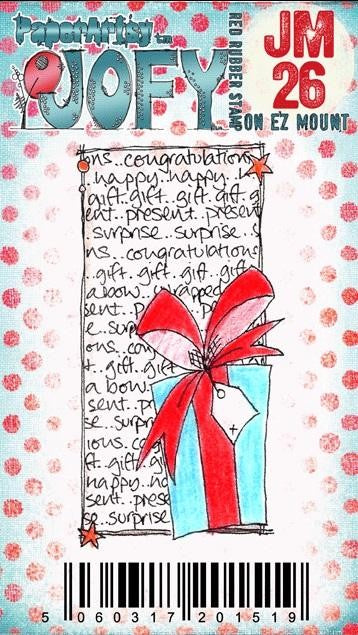 PaperArtsy tm
JOFY
RED RUBBER STAMP
JM
26
ON EZ MOUNT
ns..congratulation
.happy happy.
gift..gift..gift..gift..g
ent..present..presen
surprise..surprise..s
ns..congratulations
.gift..gift..gift..gift
a bow..wrapped
sent..p
e..surp
ions..con
t..gift..gi
a bow..
sent..pr
..surpri
ious..co
ft..gift..gi
happy..ha
sent..prese
se..surprise
5 060317 201519